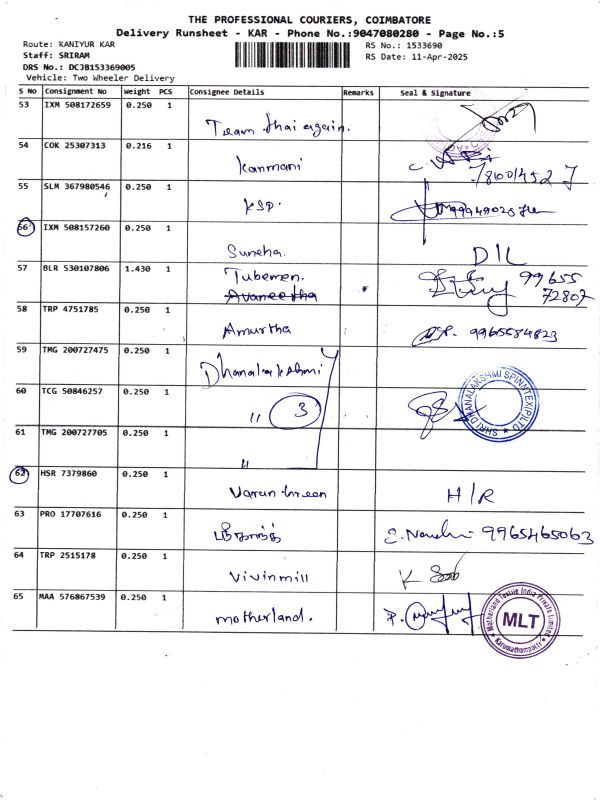 THE PROFESSIONAL COURIERS, COIMBATORE
Delivery Runsheet - KAR - Phone No.:9047080280 - Page No.:5
Route: KANIYUR KAR
RS No.: 1533690
Staff: SRIRAM
RS Date: 11-Apr-2025
DRS No.: DCJB153369005
Vehicle: Two Wheeler Delivery
S No Consignment No Weight PCS Consignee Details Remarks Seal & Signature
53 IXM 508172659 0.250 1
Team thai again.
54 COK 25307313 0.216 1
Kanmani
55 SLM 367980546 0.250 1
KSP.
56 IXM 508157260 0.250 1
Suneha. D/L
57 BLR 530107806 1.430 1
Tubemen. 99655
Avaneetha 72807
58 TRP 4751785 0.250 1
Amurtha 9965584823
59 TMG 200727475 0.250 1
Dhanalakshmi
60 TCG 50846257 0.250 1
" 3
SHRI DHANALAKSHMI SPINNTEX(P)LTD
61 TMG 200727705 0.250 1
"
62 HSR 7379860 0.250 1
Varun Green H/R
63 PRO 17707616 0.250 1
ஸ்ரீகாந்த் 9965465063
64 TRP 2515178 0.250 1
Vivinmill
65 MAA 576867539 0.250 1
Motherland.
Motherland Textile India Private Limited
MLT
Karumathampatti